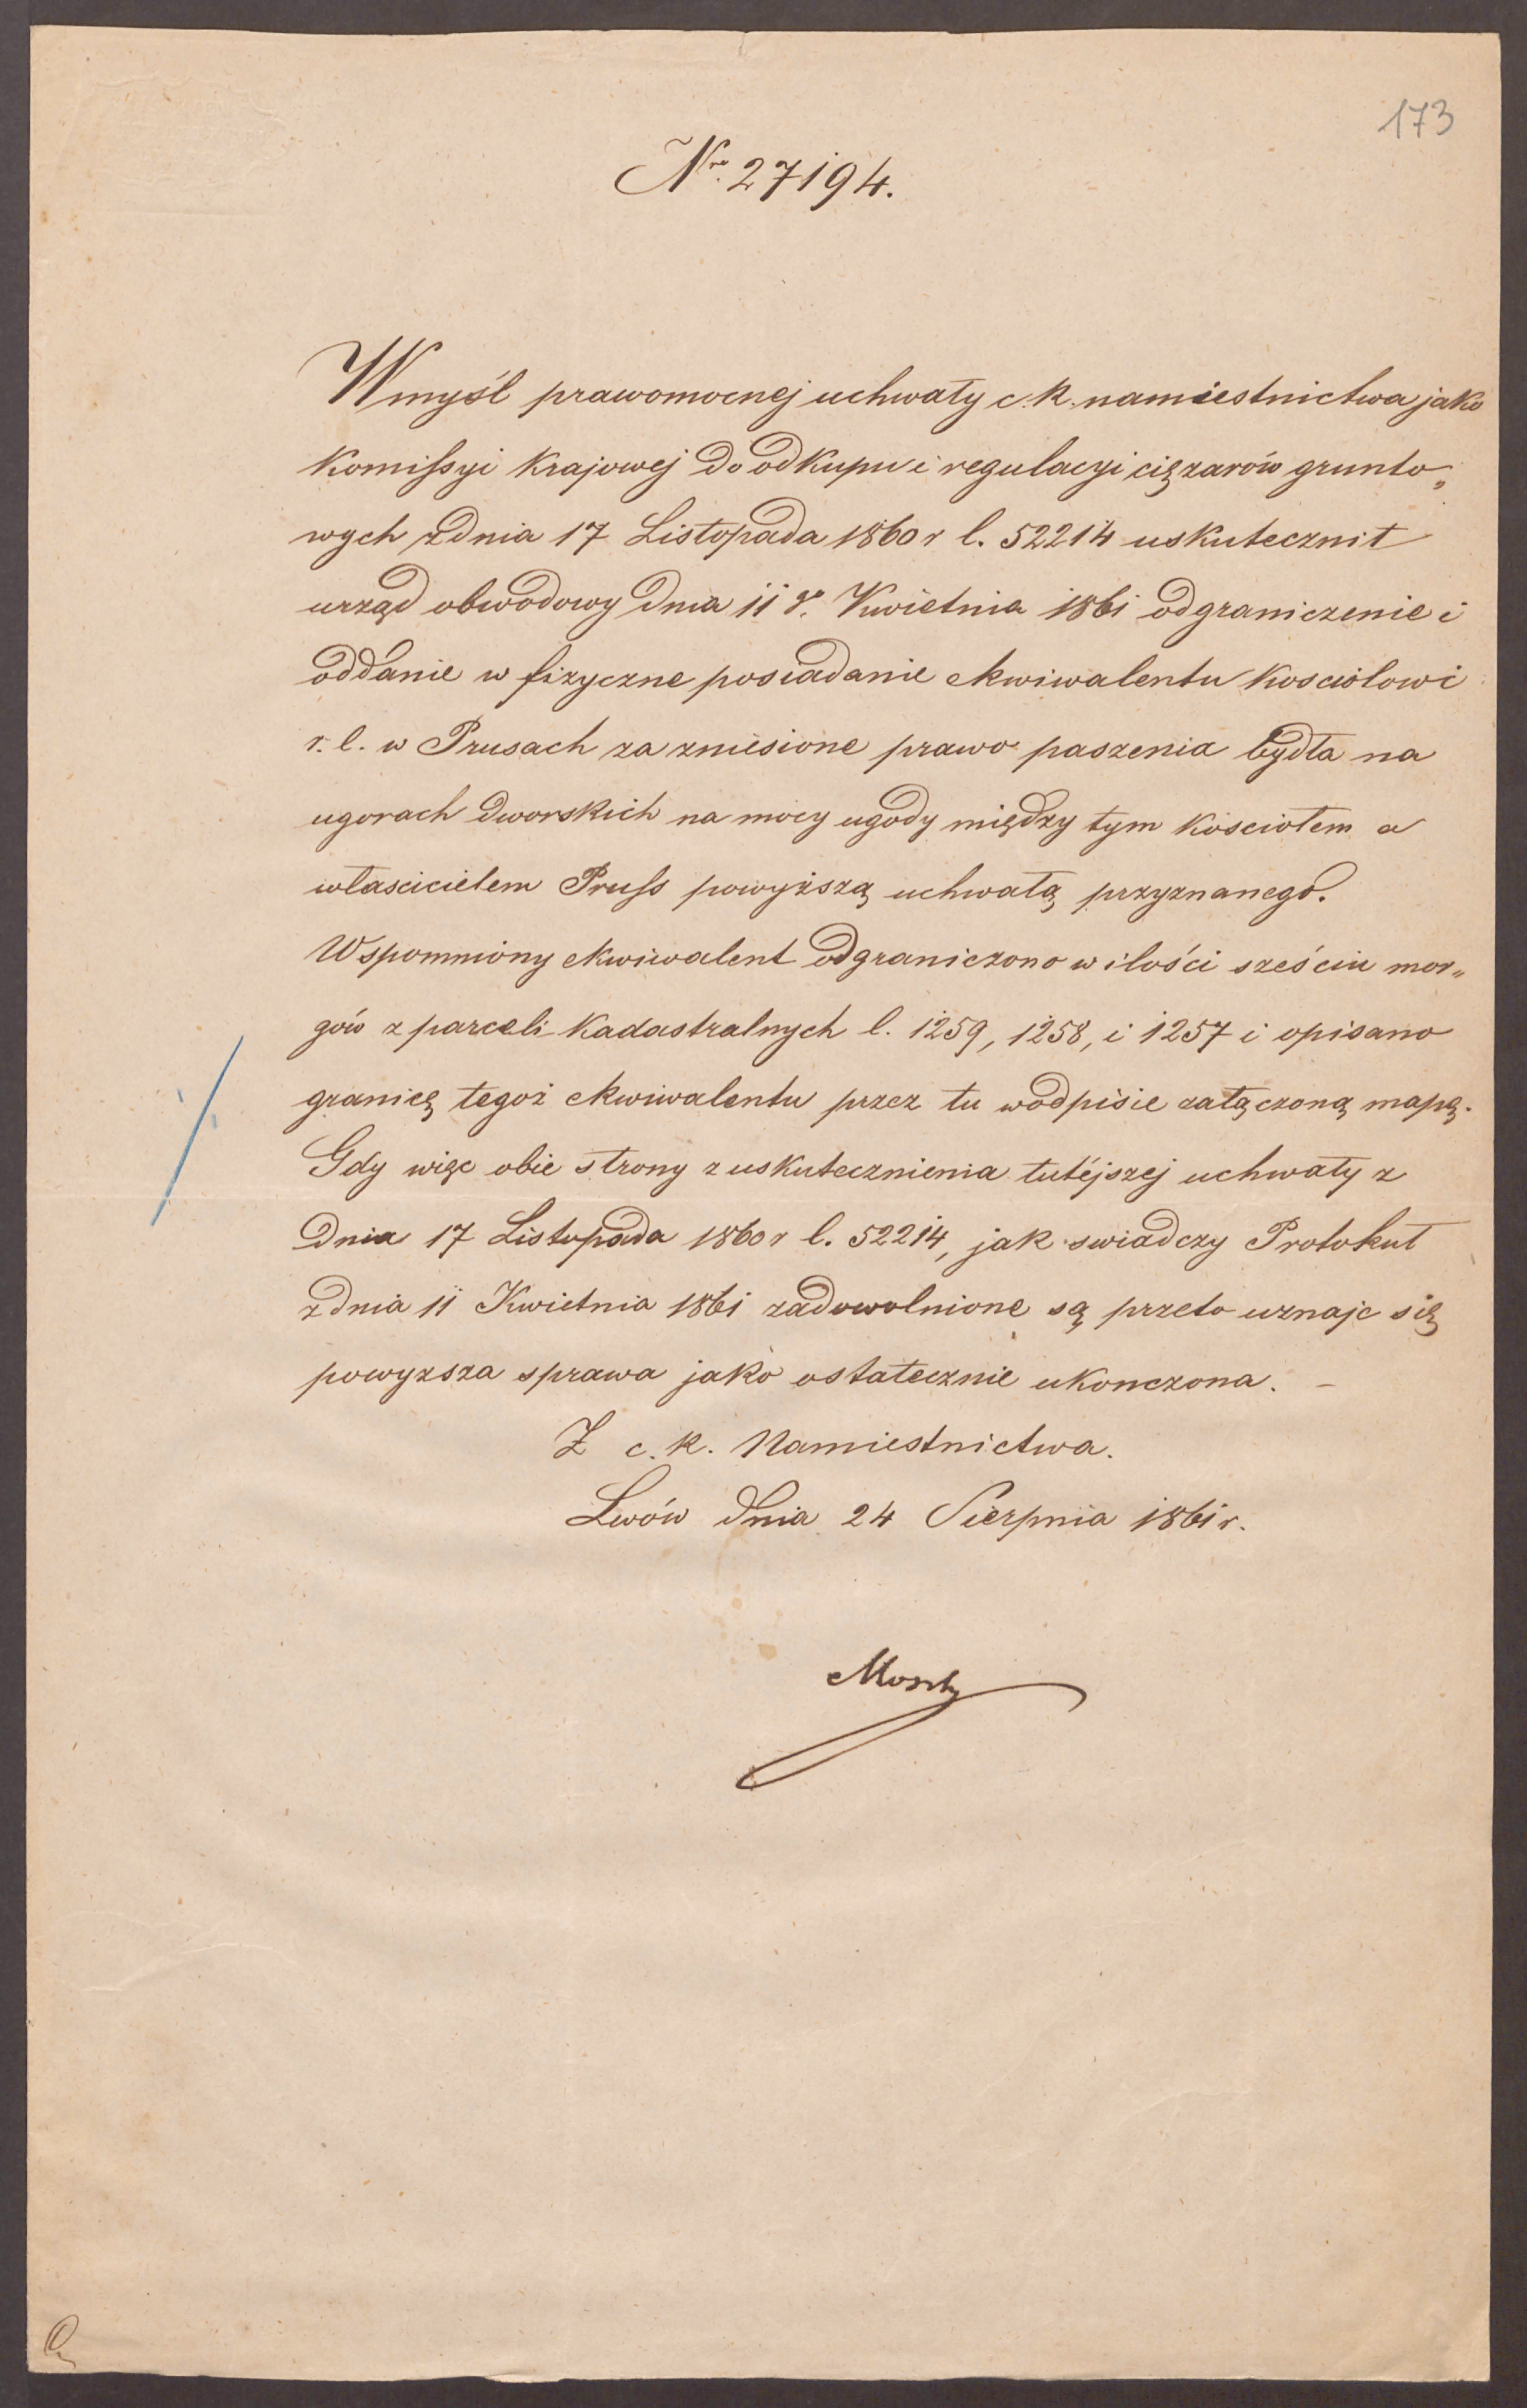 173
Nro. 27194.
W myśl prawomocnej uchwały c. k. namiestnictwa jako
komissyi krajowej do odkupu i regulacyi ciężarów grunto„
wych z dnia 17 Listopada 1860 r l. 52214 uskutecznił
urząd obwodowy dnia 11go. Kwietnia 1861 odgraniczenie i
oddanie w fizyczne posiadanie ekwiwalentu kosciołowi
r. l. w Prusach za zniesione prawo paszenia bydła na
ugorach dworskich na mocy ugody między tym kosciołem a
włascicielem Pruss powyższą uchwałą przyznanego.
Wspomniony ekwiwalent odgraniczono w ilości sześciu mor„
gów z parceli kadastralnych l. 1259, 1258, i 1257 i opisano
granicę tegoż ekwiwalentu przez tu wodpisie załączoną mapę.
Gdy więc obie strony z uskutecznienia tutéjszej uchwały z
dnia 17 Listopada 1860 r l. 52214, jak swiadczy Protokuł
z dnia 11 Kwietnia 1861 zadowolnione są przeto uznaje się
powyzsza sprawa jako ostatecznie ukonczona. –
Z c. k. Namiestnictwa.
Lwów dnia 24 Sierpnia 1861 r.